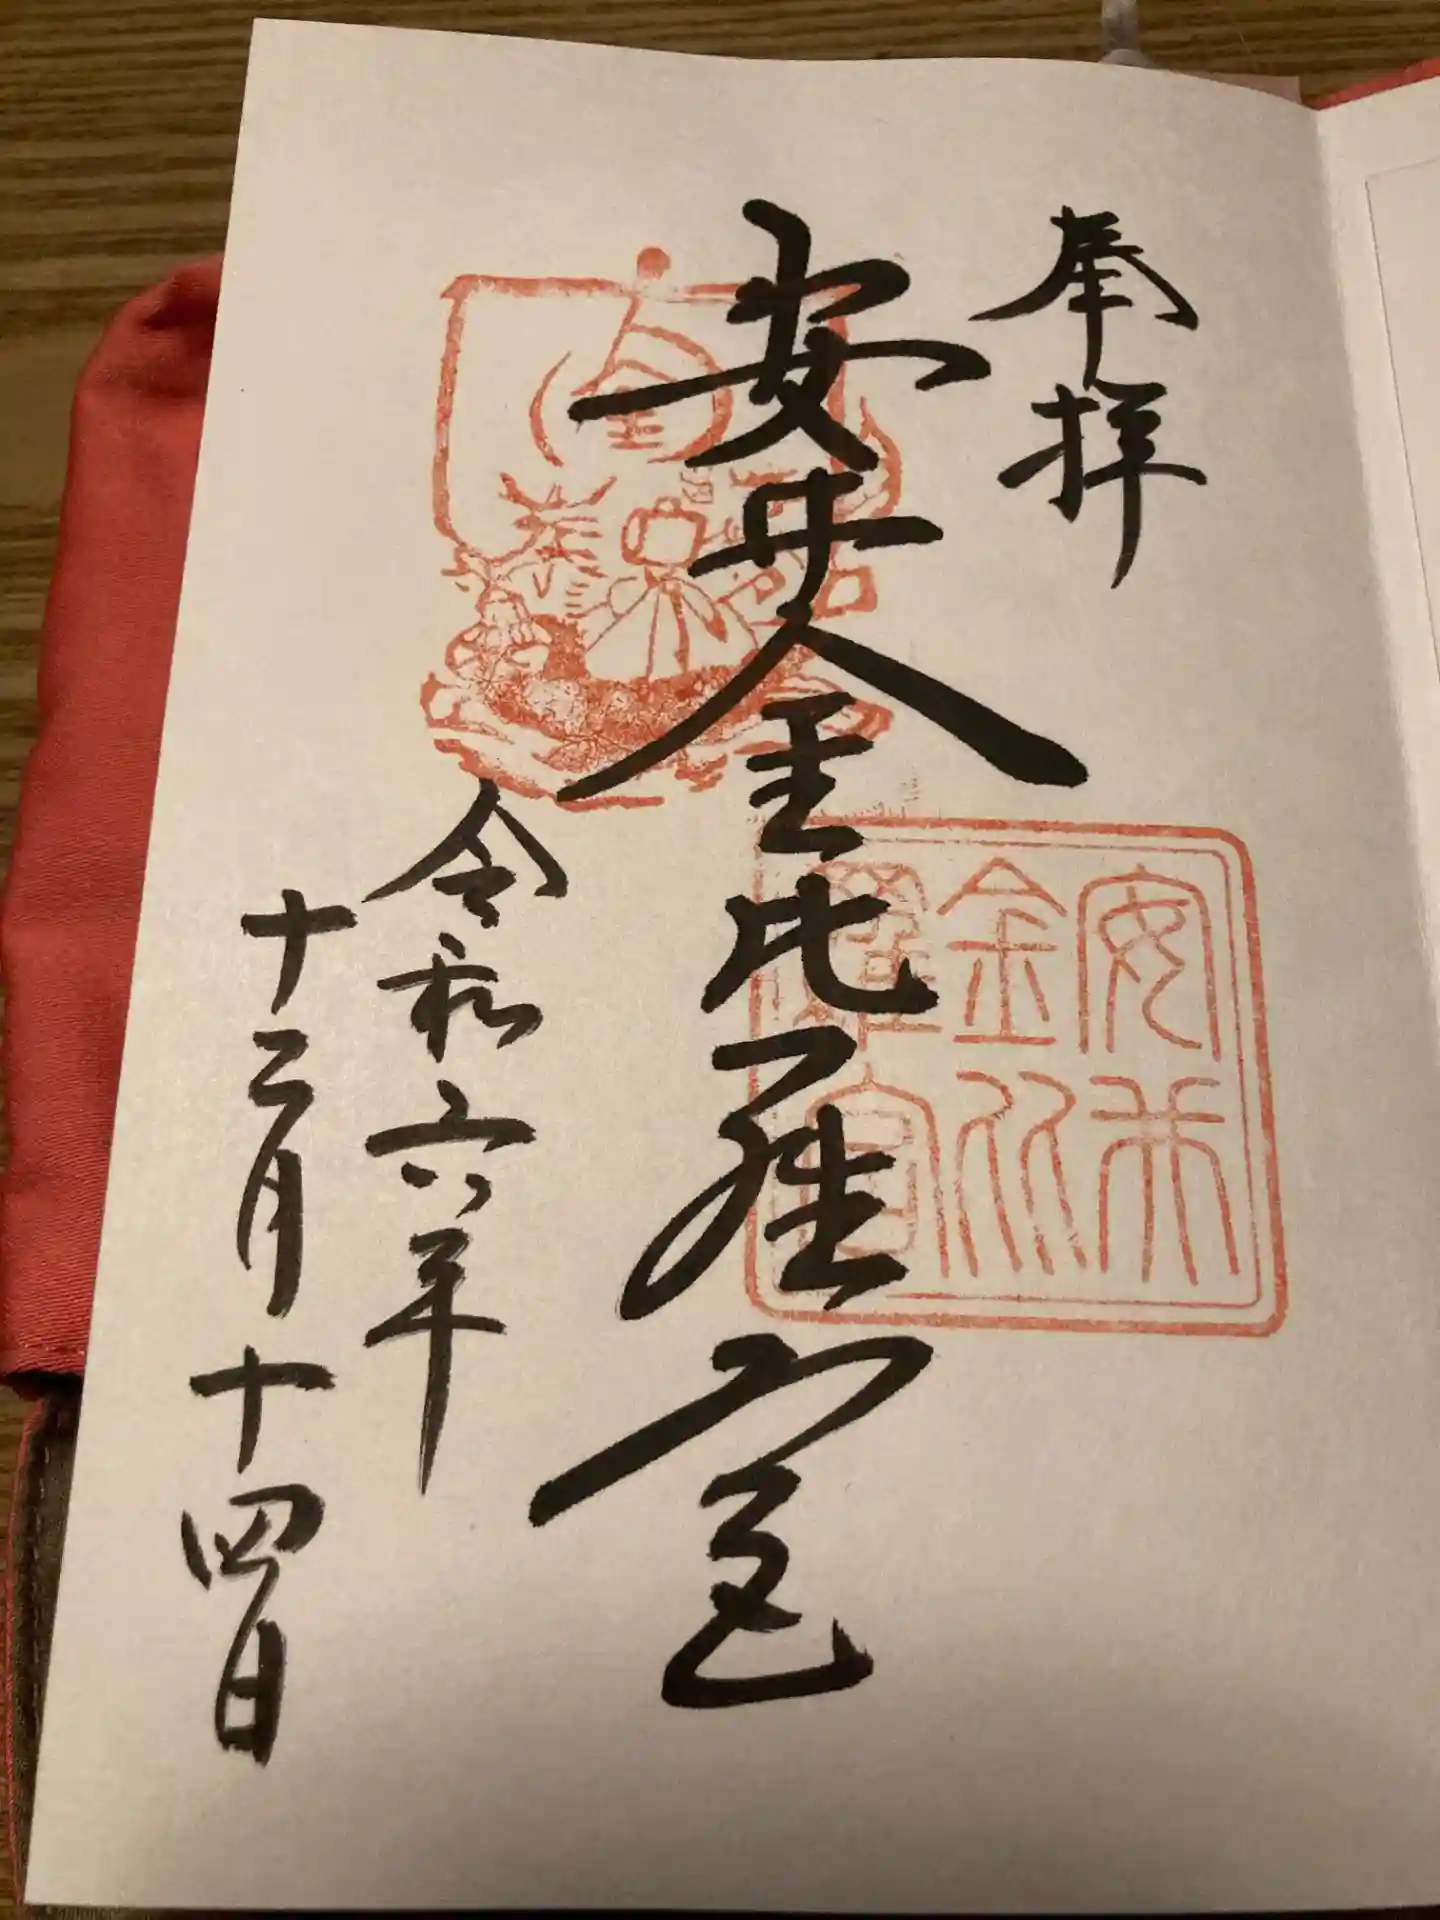 奉拝
安井金比羅宮
安井
金比
羅宮
金
令和六年
十二月十四日